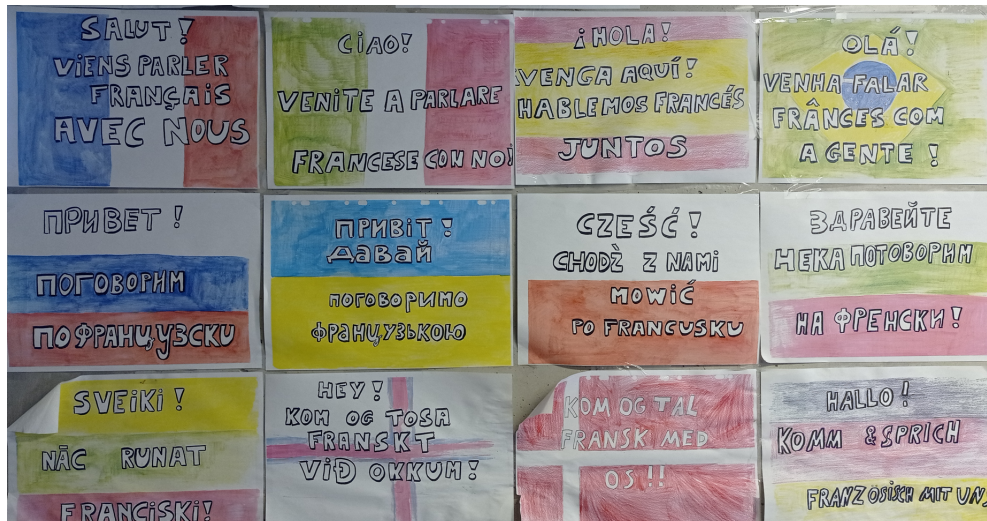 SALUT!
VIENS PARLER
FRANÇAIS
AVEC NOUS
CIAO!
VENITE A PARLARE
FRANCESE CON NOI
¡HOLA!
VENGA AQUÍ!
HABLEMOS FRANCÉS
JUNTOS
OLÁ!
VENHA FALAR
FRÂNCES COM
A GENTE!
ПРИВЕТ!
ПОГОВОРИМ
ПО ФРАНЦУЗСКИ
ПРИВІТ!
ДАВАЙ
ПОГОВОРИМО
ФРАНЦУЗЬКОЮ
CZEŚĆ!
CHODŹ Z NAMI
MOWIĆ
PO FRANCUSKU
ЗДРАВЕЙТЕ
НЕКА ПОТОВОРИМ
НА ФРЕНСКИ!
SVEIKI!
NĀC RUNAT
FRANCISKI!
HEY!
KOM OG TOSA
FRANSKT
VIÐ OKKUM!
KOM OG TAL
FRANSK MED
OS!!
HALLO!
KOMM & SPRICH
FRANZÖSISCH MIT UNS